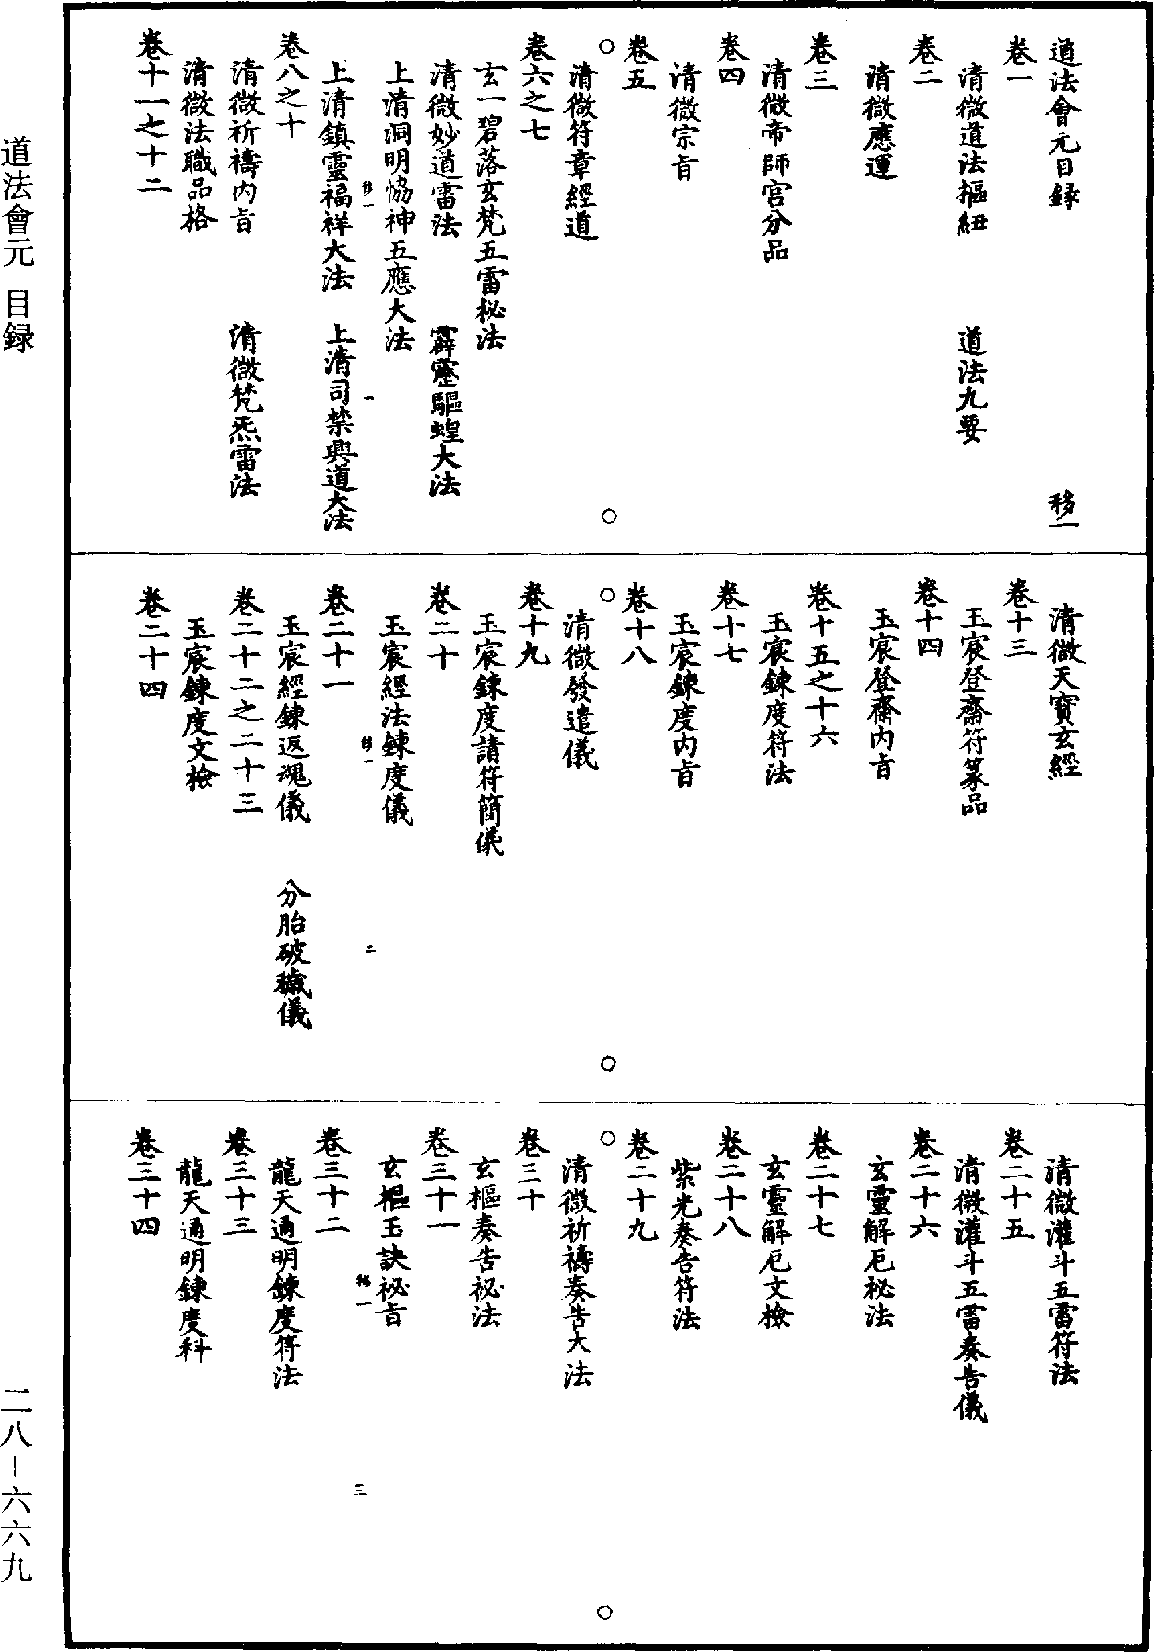 道法會元目録　移一
卷一
清微道法樞紐　道法九要
卷二
清微應運
卷三
清微帝師宮分品
卷四
清微宗旨
卷五
清微符章經道
卷六之七
玄一碧落玄梵五雷祕法
清微妙道雷法　霹靂驅蝗大法
上清洞明協神五應大法
移一　一
上清鎮靈福祥大法　上清司禁興道大法
卷八之十
清微祈禱內旨　清微梵炁雷法
清微法職品格
卷十一之十二
清微天寶玄經
卷十三
玉宸登齋符篆品
卷十四
玉宸登齋內旨
卷十五之十六
玉宸鍊度符法
卷十七
玉宸鍊度內旨
卷十八
清微發遣儀
卷十九
玉宸鍊度請符簡儀
卷二十
玉宸經法鍊度儀
移一　二
卷二十一
玉宸經鍊返魂儀　分胎破穢儀
卷二十二之二十三
玉宸鍊度文檢
卷二十四
清微灌斗五雷符法
卷二十五
清微灌斗五雷奏告儀
卷二十六
玄靈解厄祕法
卷二十七
玄靈解厄文檢
卷二十八
紫光奏告符法
卷二十九
清微祈禱奏告大法
卷三十
玄樞奏告祕法
卷三十一
玄樞玉訣祕旨
移一　三
卷三十二
龍天通明鍊度符法
卷三十三
龍天通明鍊度科
卷三十四
道法會元　目録
二八－六六九